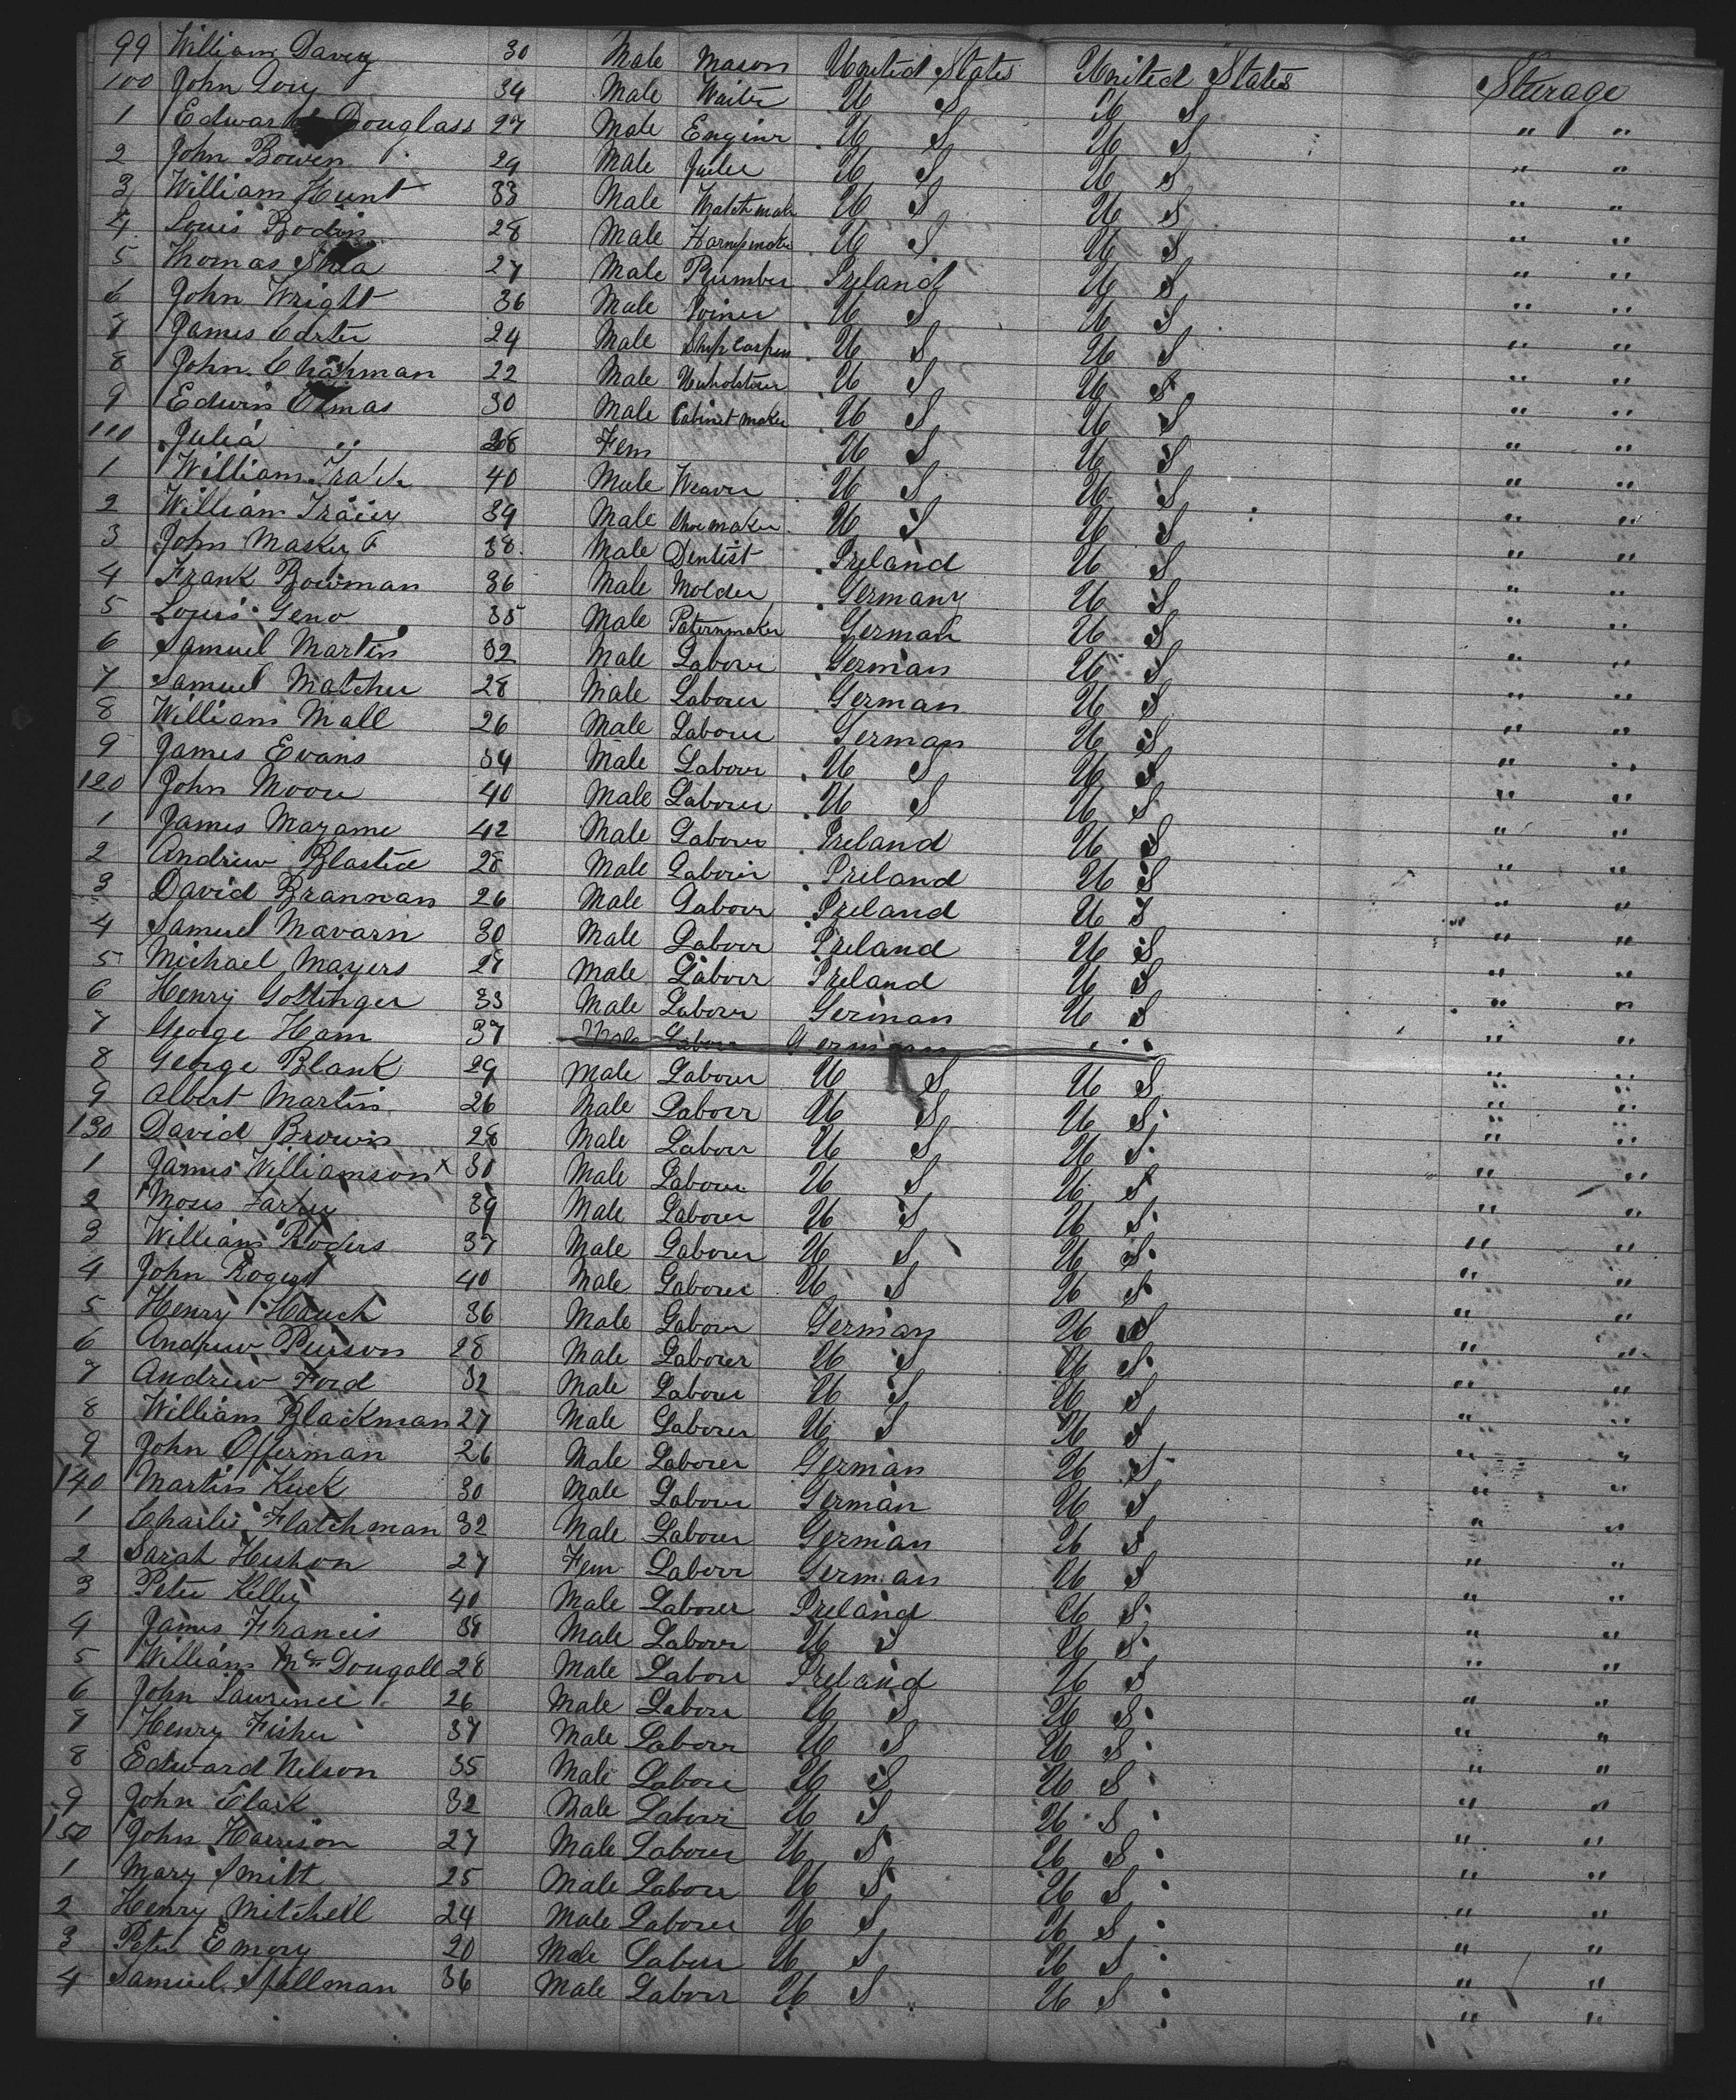 99 William Davey 30 Male Mason United States United States Sturage
100 John Dory 34 Male Waiter U S U S " "
1 Edward Douglass 27 Male Enginr U S U S " "
2 John Bowen 29 Male U S U S " "
3 William Hunt 33 Male Watchmak U S U S " "
4 Louis Bodin 28 Male Harnessmaker U S U S " "
5 Thomas Shea 27 Male Plumber Ireland U S " "
6 John Wright 36 Male Joiner U S U S " "
7 James Carter 24 Male Ship Carpen U S U S " "
8 John Chapman 22 Male Upholsterer U S U S " "
9 Edwin 30 Male Cabinet maker U S U S " "
110 Julia " 28 Fem U S U S " "
1 William 40 Male Weaver U S U S " "
2 William Tracey 39 Male Shoe maker U S U S " "
3 John 38 Male Dentist Ireland U S " "
4 Frank Bowman 36 Male Molder Germany U S " "
5 Louis Geno 35 Male Paternmaker German U S " "
6 Samuel Martin 32 Male Labour German U S " "
7 Samuel Matcher 28 Male Labour German U S " "
8 William Mall 26 Male Labour German U S " "
9 James Evans 34 Male Labour U S U S " "
120 John Moore 40 Male Labour U S U S " "
1 James Mazame 42 Male Labour Ireland U S " "
2 Andrew 28 Male Labour Ireland U S " "
3 David Brannan 26 Male Labour Ireland U S " "
4 Samuel Navarn 30 Male Labour Ireland U S " "
5 Michael Mayers 27 Male Labour Ireland U S " "
6 Henry Gottinger 33 Male Labour German U S " "
7 George Ham 37 Male Labour German " "
8 George Blank 29 Male Labour U S U S " "
9 Albert Martin 26 Male Labour U S U S " "
130 David Brown 28 Male Labour U S U S " "
1 James Williamson x 30 Male Labour U S U S " "
2 Moses Farley 39 Male Labour U S U S " "
3 William Roders 37 Male Labour U S U S " "
4 John Rogers 40 Male Labour U S U S " "
5 Henry Hauck 36 Male Labour German U S " "
6 Andrew Peirson 28 Male Labour U S U S " "
7 Andrew Ford 32 Male Labour U S U S " "
8 William Blackman 27 Male Labour U S U S " "
9 John Offerman 26 Male Labour German U S " "
140 Martin Kuck 30 Male Labour German U S " "
1 Charles Flatchman 32 Male Labour German U S " "
2 Sarah Hishon 27 Fem Labour German U S " "
3 Peter Kelley 40 Male Labour Ireland U S " "
4 James Francis 38 Male Labour U S U S " "
5 William Mc Dougall 28 Male Labour Ireland U S " "
6 John Lawrence 26 Male Labour U S U S " "
7 Henry Fisher 37 Male Labour U S U S " "
8 Edward Nelson 35 Male Labour U S U S " "
9 John Clark 32 Male Labour U S U S " "
150 John Harrison 27 Male Labour U S U S " "
1 Mary Smitt 25 Male Labour U S U S " "
2 Henry Mitchell 24 Male Labour U S U S " "
3 Peter Emory 20 Male Labour U S U S " "
4 Samuel Spellman 36 Male Labour U S U S " "